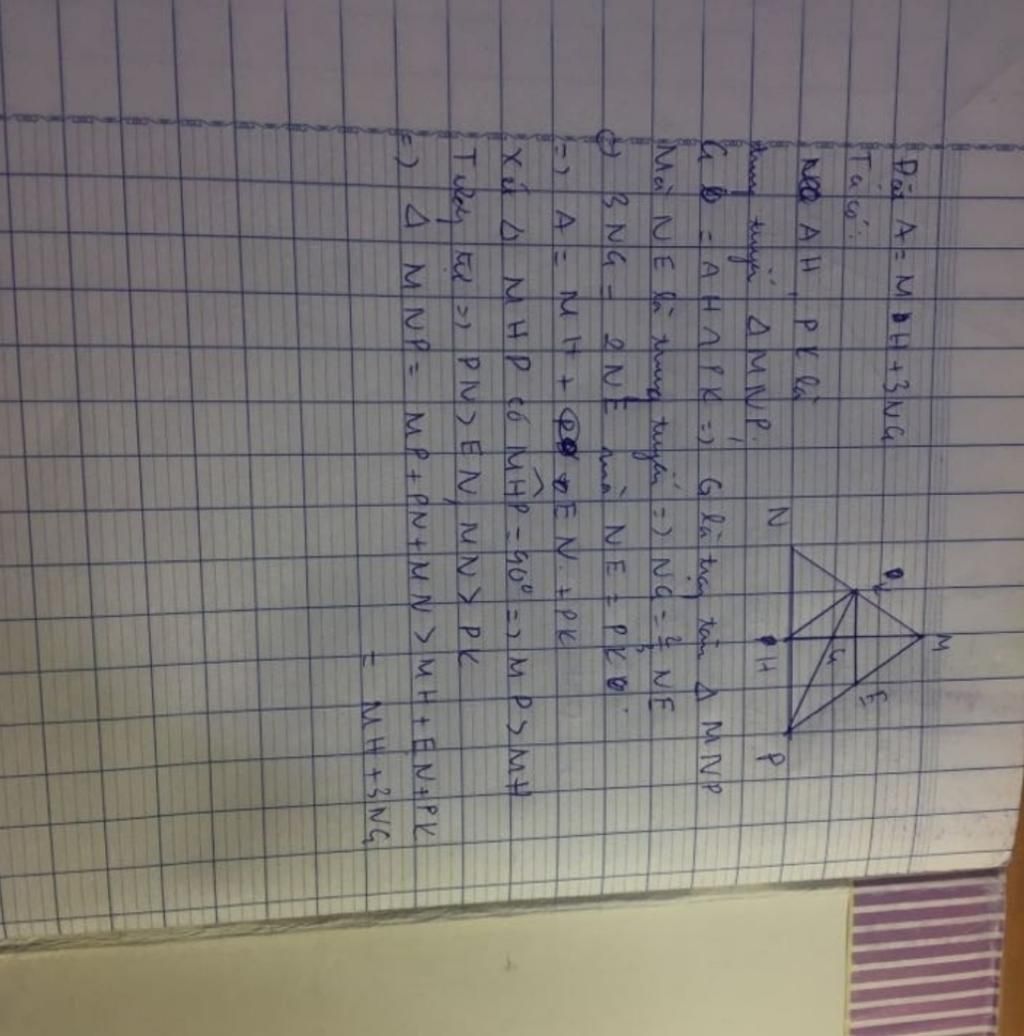 Đặt A = MH + 3NG
Ta có:
AH, PK là
trung tuyến Δ MNP.
G = AH ∩ PK => G là trọng tâm Δ MNP
Mà NE là trung tuyến => NG = 2/3 NE
3NG = 2NE mà NE = PK.
=> A = MH + EN + PK
Xét Δ MHP có MHP = 90° => MP > MH
Tương tự => PN > EN, MN > PK
=> Δ MNP = MP + PN + MN > MH + EN + PK
= MH + 3NG
M
E
G
N
H
P